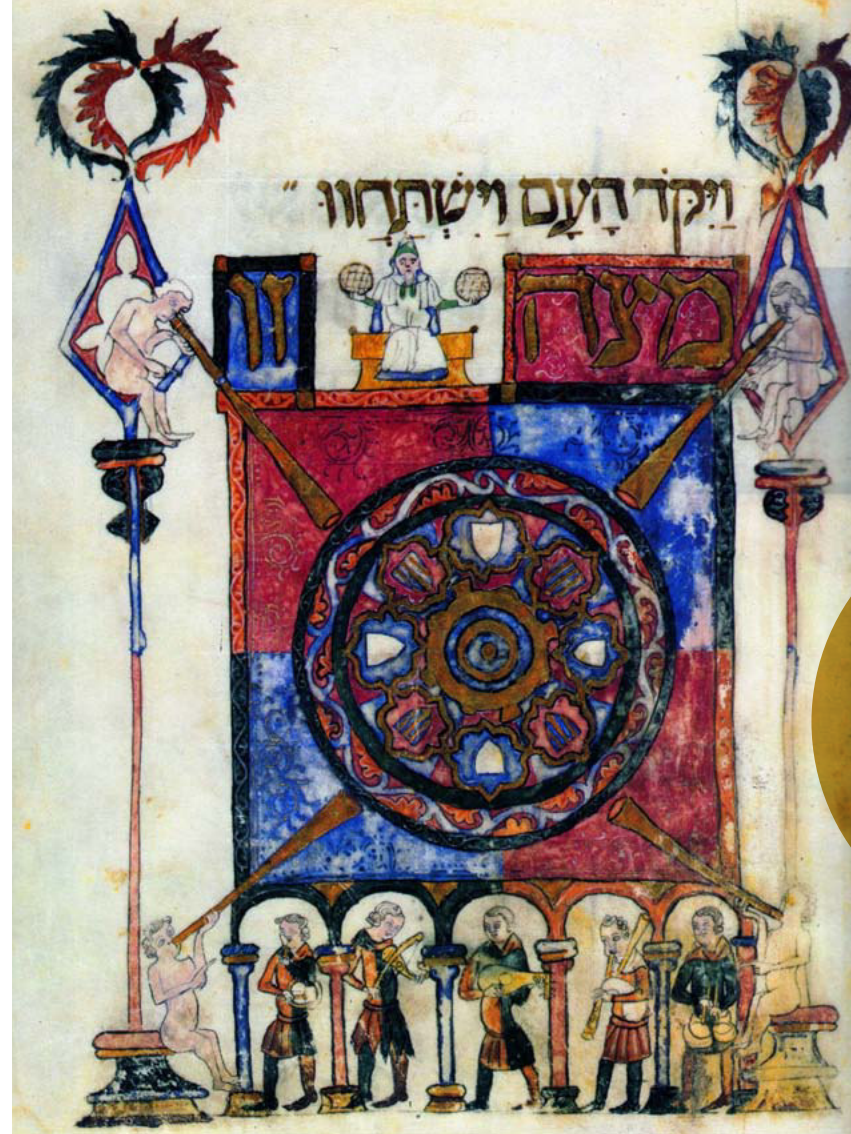 וַיִּקֹּד הָעָם וַיִּשְׁתַּחֲווּ ״
מצה זו